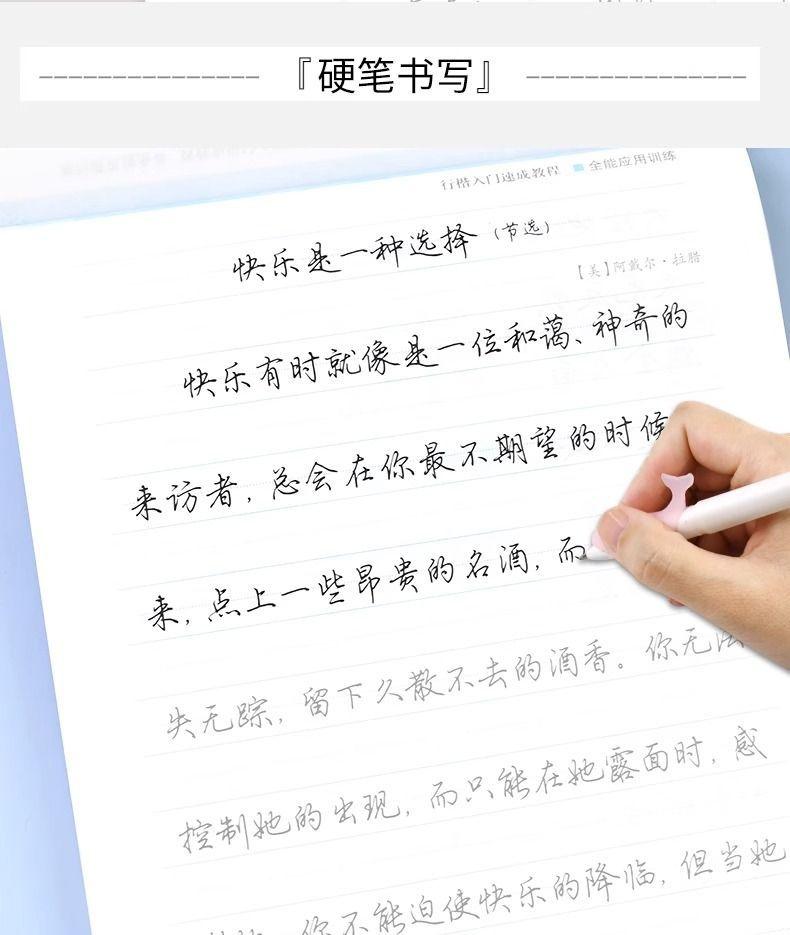 『硬笔书写』
行楷入门速成教程 全能应用训练
快乐是一种选择（节选）
【美】阿戴尔·拉腊
快乐有时就像是一位和蔼、神奇的
来访者，总会在你最不期望的时候
来，点上一些昂贵的名酒，而
失无踪，留下久散不去的酒香。你无法
控制她的出现，而只能在她露面时，感
你不能迫使快乐的降临，但当她